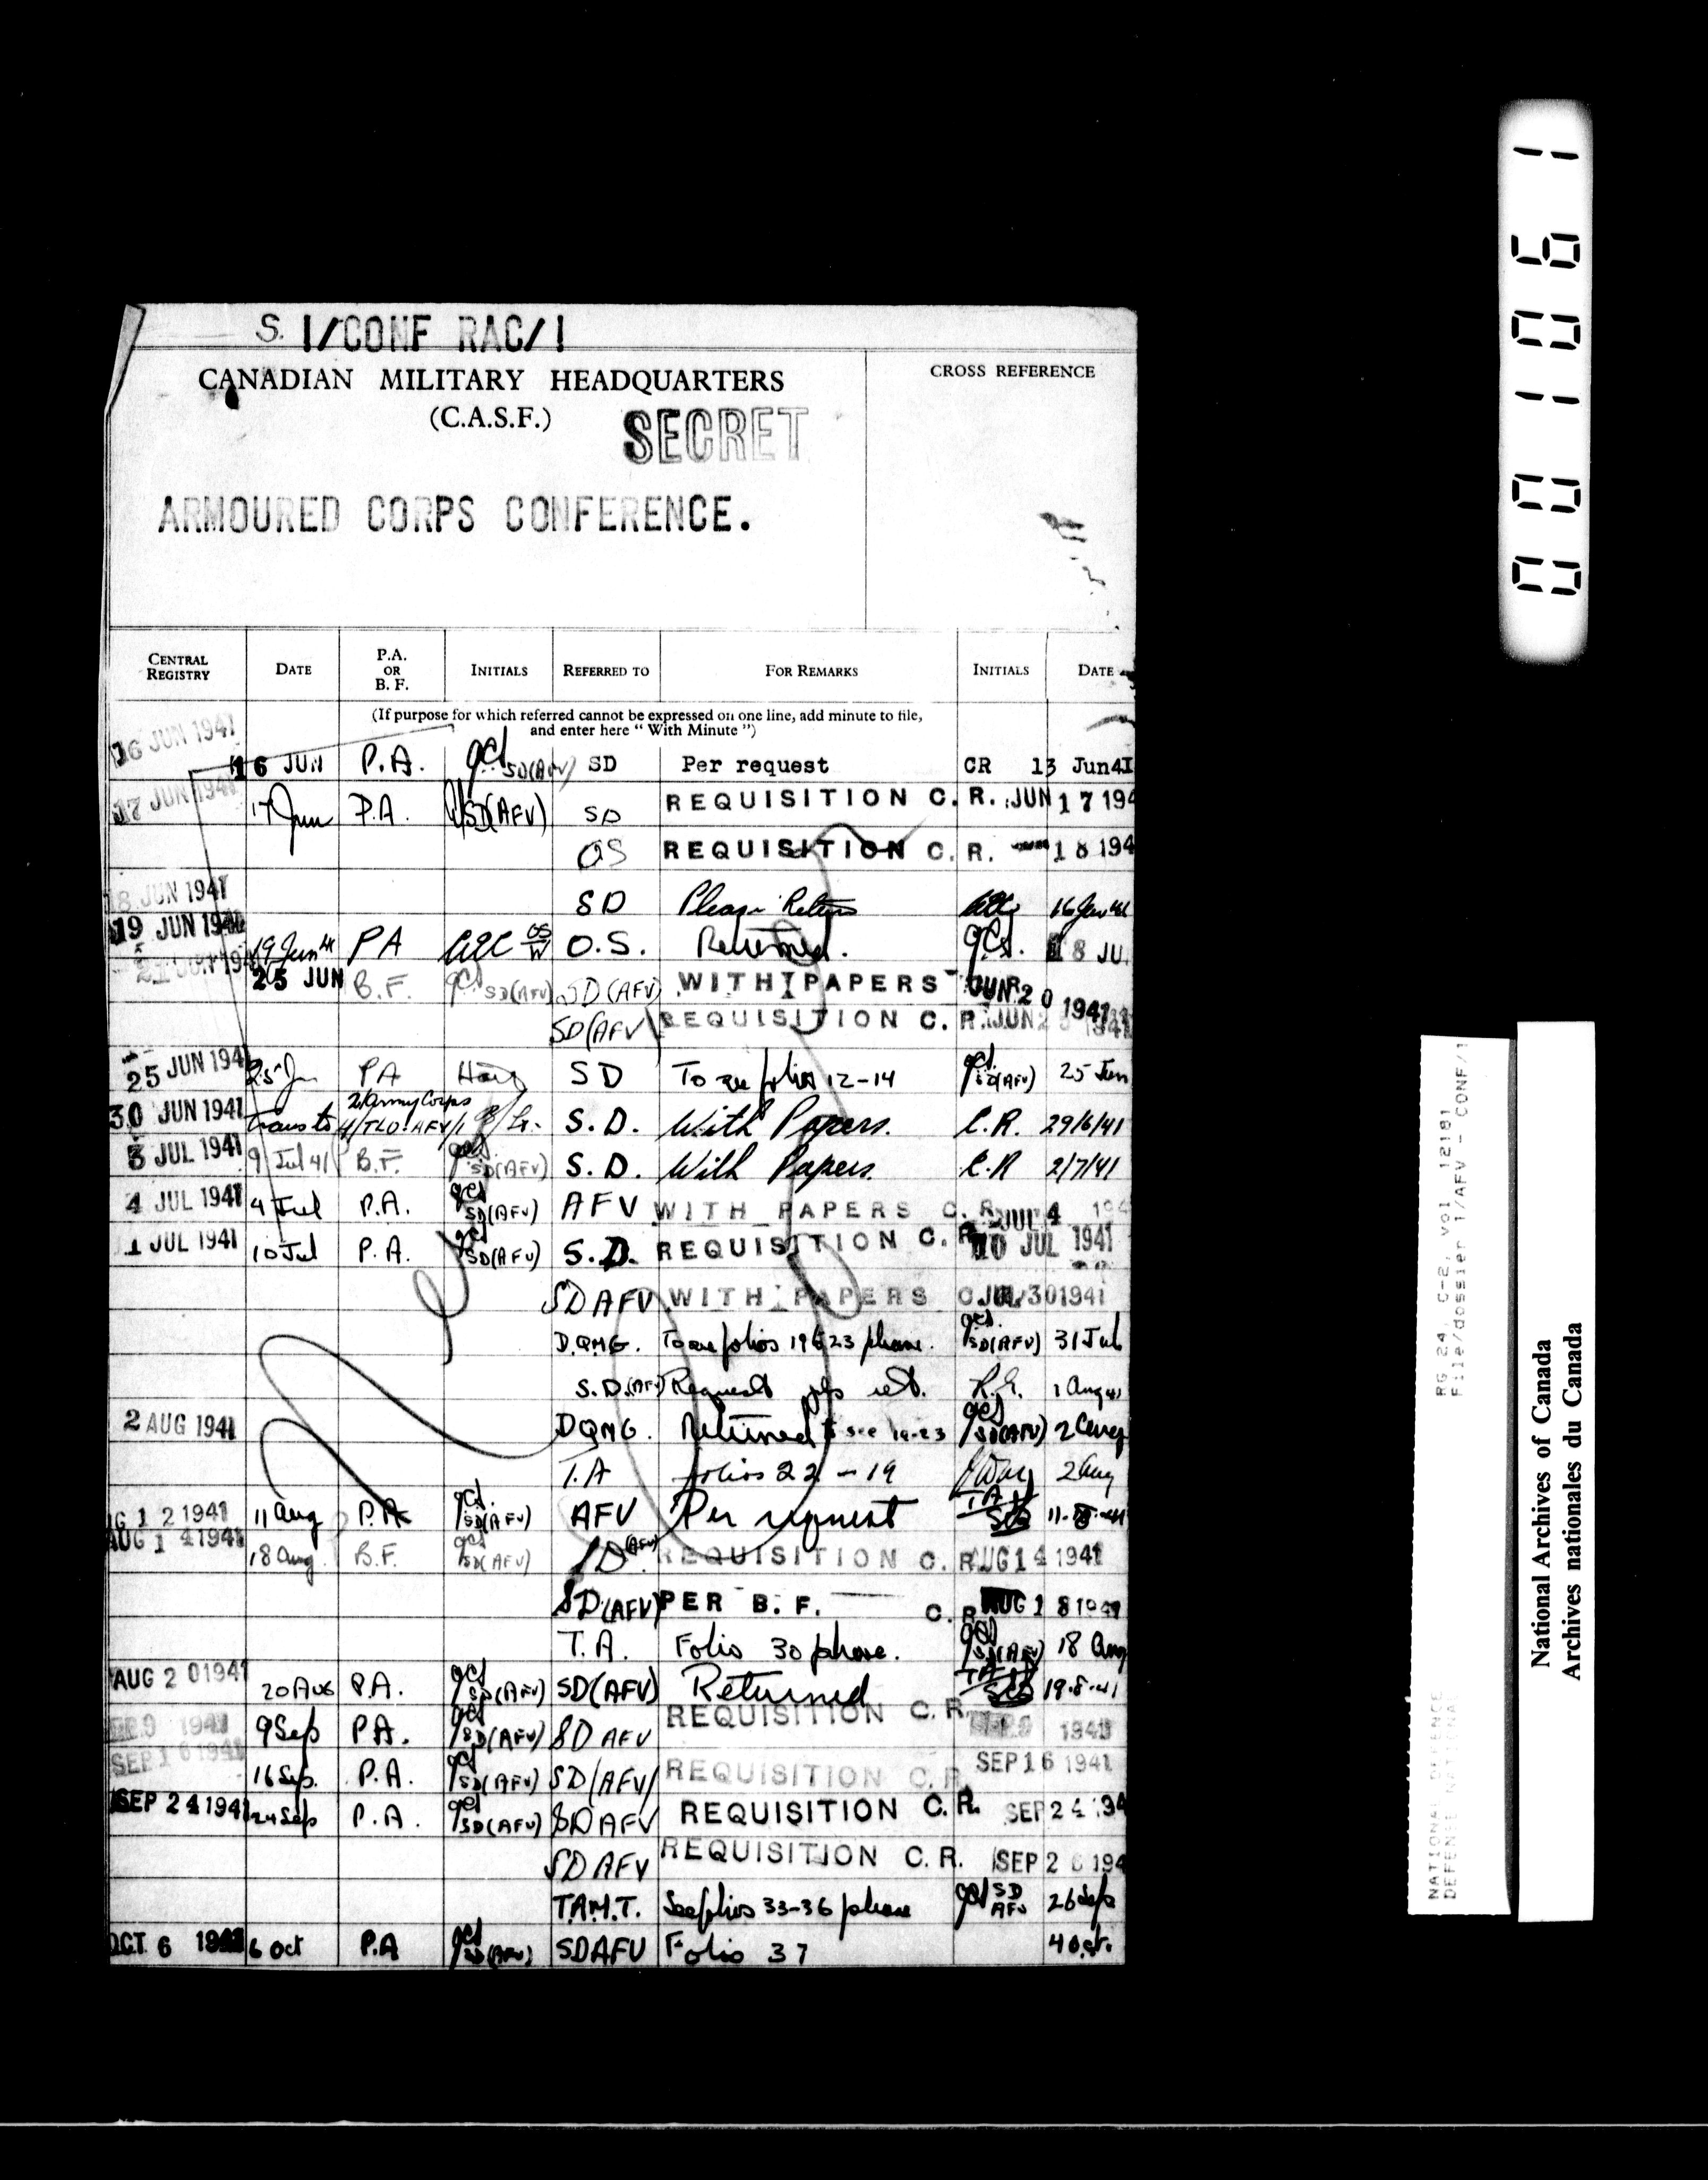 S. 1/CONF RAC/1
CANADIAN MILITARY HEADQUARTERS
(C.A.S.F.)
SECRET
CROSS REFERENCE
ARMOURED CORPS CONFERENCE.
CENTRAL REGISTRY DATE P.A. OR B. F. INITIALS REFERRED TO FOR REMARKS INITIALS DATE
(If purpose for which referred cannot be expressed on one line, add minute to file,
and enter here "With Minute")
16 JUN 1941 16 JUN P.A. SD(AFV) SD Per request CR 13 Jun 41
17 JUN 1941 17 Jun P.A. SD(AFV) SD REQUISITION C. R. JUN 17 194
OS REQUISITION C. R. 18 194
18 JUN 1941 SD Please Return 16 Jun 41
19 JUN 194 19 Jun 41 PA O.S. Returned. 18 JU
25 JUN B.F. SD(AFV) SD(AFV) WITH PAPERS JUN 20 1941
SD(AFV) REQUISITION C. R. JUN 2 1941
25 JUN 194 25 Jun PA SD To see folios 12-14 SD(AFV) 25 Jun
30 JUN 1941 Trans to 2/Army Corps S. D. With Papers. C.R. 29/6/41
3 JUL 1941 9 Jul 41 B.F. SD(AFV) S. D. With Papers. C.R 2/7/41
4 JUL 1941 4 Jul P.A. SD(AFV) AFV WITH PAPERS C. R. JUL 4
1 JUL 1941 10 Jul P.A. SD(AFV) S.D. REQUISITION C. R. 10 JUL 1941
SD AFV WITH PAPERS C JUL 30 1941
D.QMG. To see folios 19 to 23 please. SD(AFV) 31 Jul
S.D.(AFV) Request 1 Aug 41
2 AUG 1941 DQMG. Returned to see 19-23 SD(AFV) 2 Aug
T.A folios 22 - 19 2 Aug
G 1 2 1941 11 Aug P.A. SD(AFV) AFV Per request TA 11-8-41
AUG 1 4 1941 18 Aug. B.F. SD(AFV) SD (AFV) REQUISITION C. R. AUG 14 1941
SD(AFV) PER B. F. C. R. AUG 1 8 1941
T.A. Folio 30 please. SD(AFV) 18 Aug
AUG 2 0 1941 20 AUG P.A. SD(AFV) SD(AFV) Returned TA 19-8-41
SEP 9 1941 9 Sep P.A. SD(AFV) SD AFV REQUISITION C. R. 1941
SEP 1 6 1941 16 Sep. P.A. SD(AFV) SD(AFV) REQUISITION C. R. SEP 16 1941
SEP 24 1941 24 Sep P.A. SD(AFV) SD AFV REQUISITION C. R. SEP 24 194
SD AFV REQUISITION C. R. SEP 2 6 194
T.A.M.T. See folios 33-36 please SD AFV 26 Sep
OCT 6 1941 6 Oct P.A SD(AFV) SDAFV Folio 37 4 Oct.
001061
RG 24, C-2, vol 12181
File/dossier 1/AFV - CONF/1
NATIONAL DEFENCE
DEFENSE NATIONALE
National Archives of Canada
Archives nationales du Canada